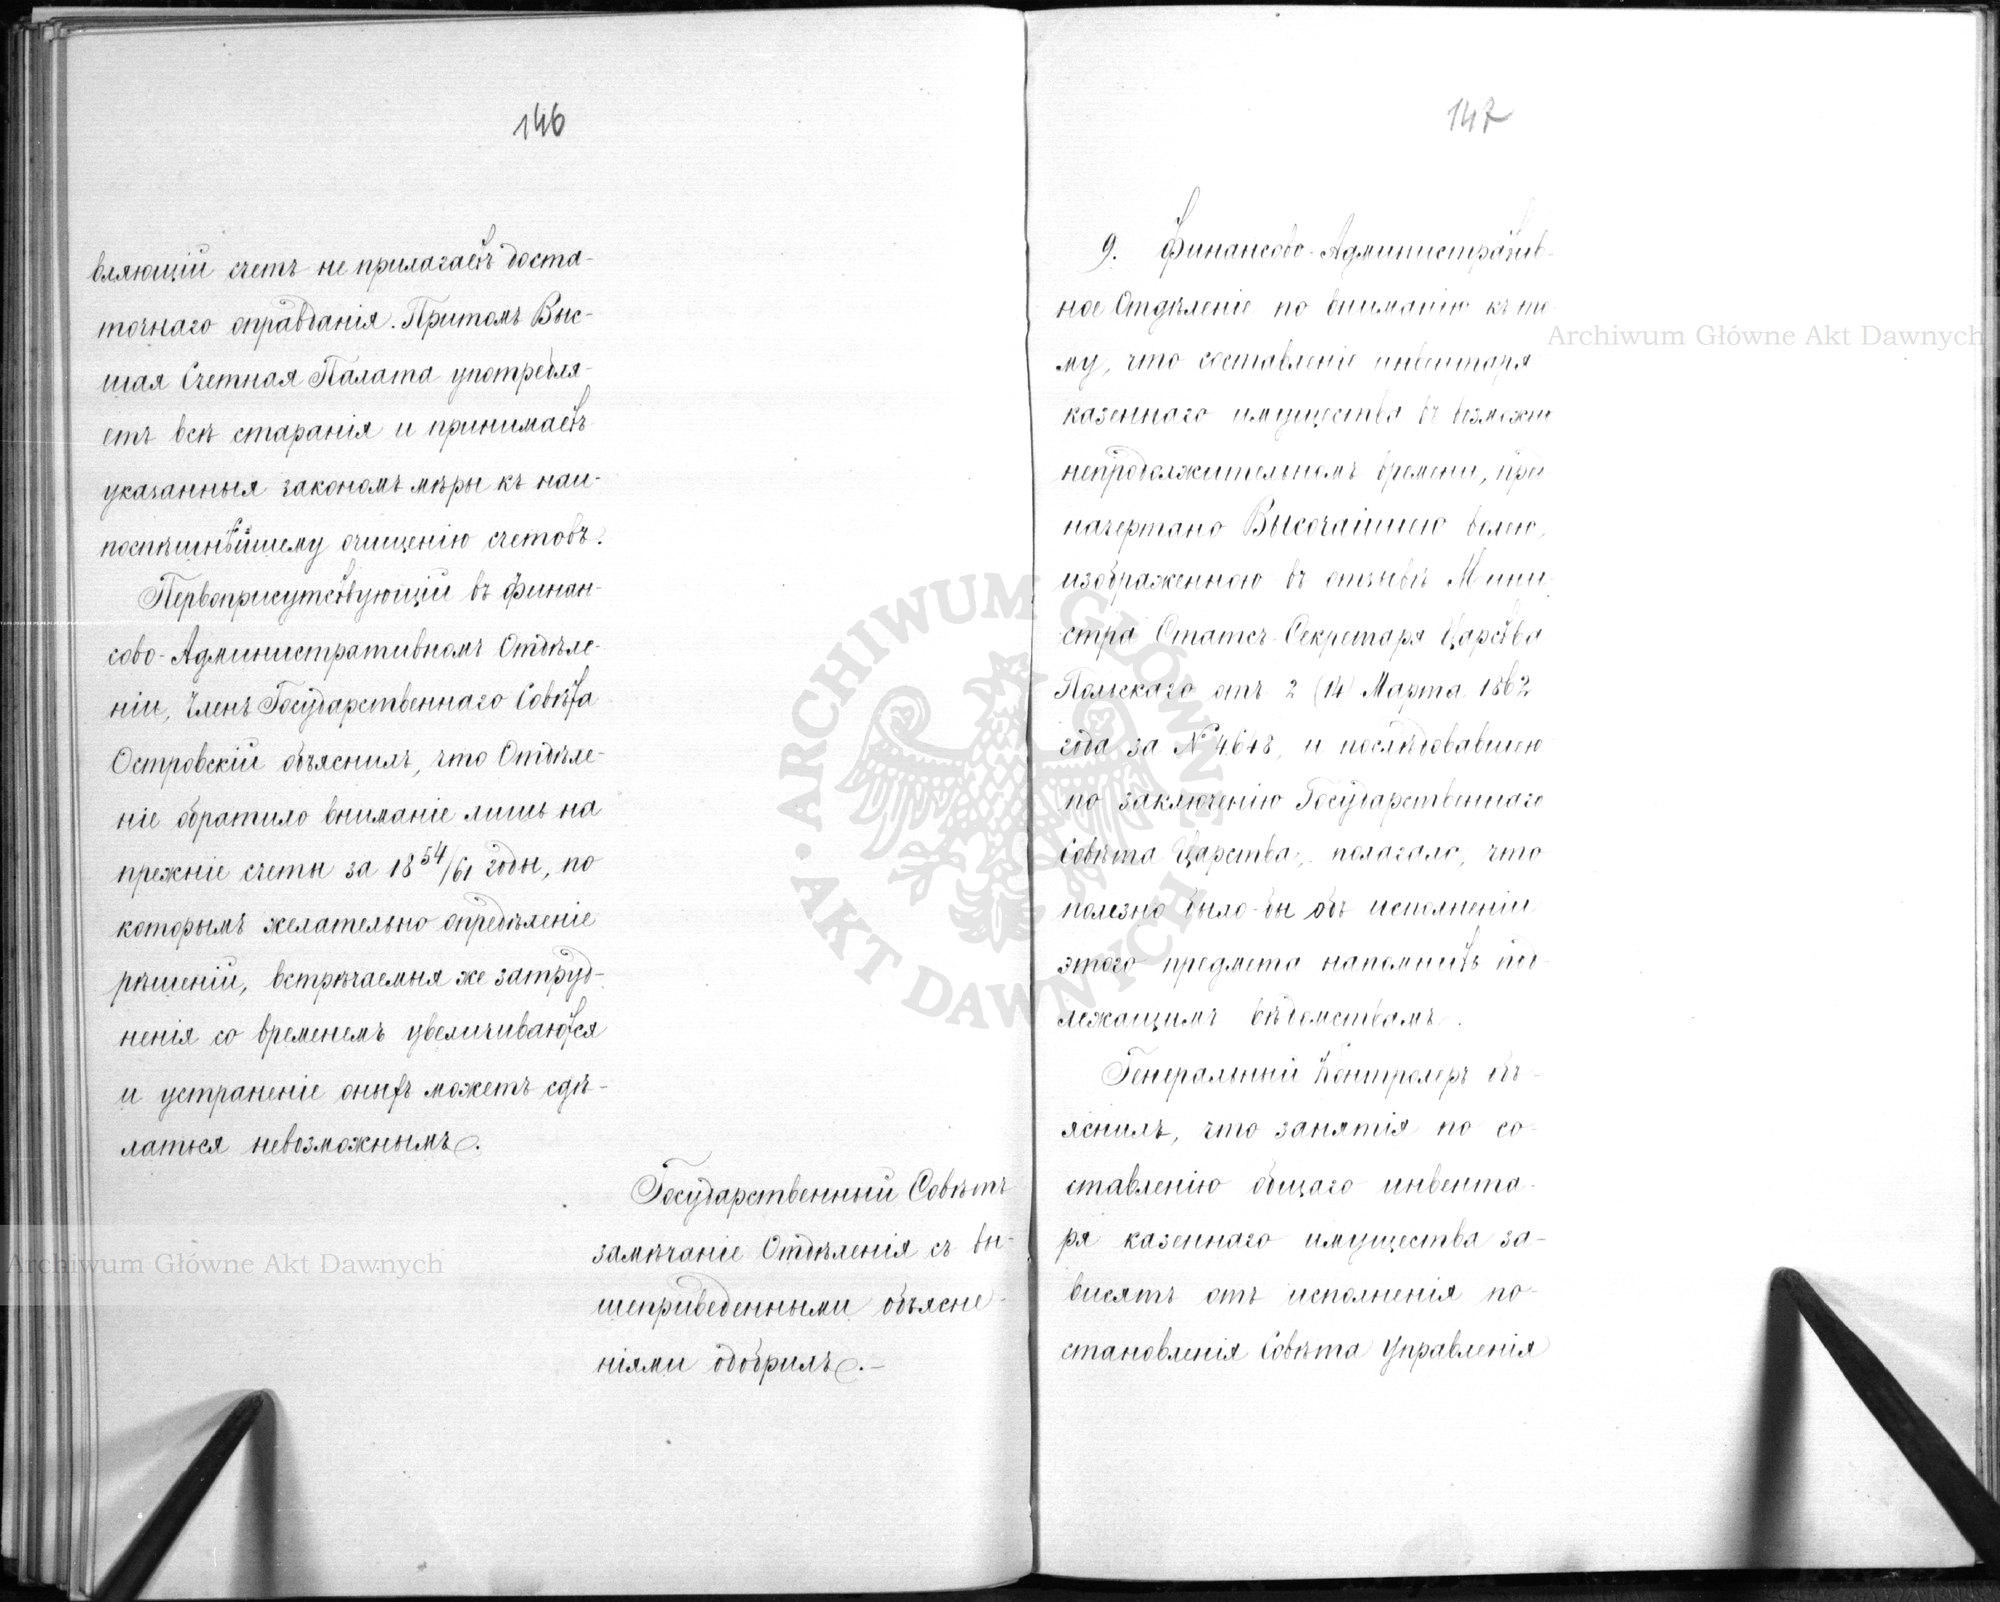 146
вляющій счетъ не прилагаетъ доста-
точнаго оправданія. Притомъ Выс-
шая Счетная Палата употребля-
етъ всѣ старанія и принимаетъ
указанныя закономъ мѣры къ наи-
поспѣшнѣйшему очищенію счетовъ.
Первоприсутствующій въ Финан-
сово-Административномъ Отдѣле-
ніи, Членъ Государственнаго Совѣта
Островскій объяснилъ, что Отдѣле-
ніе обратило вниманіе лишь на
прежніе счеты за 18 54/61 годы, по
которымъ желательно опредѣленіе
рѣшеній, встрѣчаемыя же затруд-
ненія со временемъ увеличиваются
и устраненіе оныхъ можетъ сдѣ-
латься невозможнымъ.
Государственный Совѣтъ
замѣчаніе Отдѣленія съ вы-
шеприведенными объясне-
ніями одобрилъ.-
147
9. Финансово-Административ-
ное Отдѣленіе по вниманію къ то-
му, что составленіе инвентаря
казеннаго имущества въ возможно
непродолжительномъ времени, пред
начертано Высочайшею волею,
изображенною въ отзывѣ Мини-
стра Статсъ-Секретаря Царства
Польскаго отъ 2 (14) Марта 1862
года за № 4648, и послѣдовавшею
по заключенію Государственнаго
Совѣта Царства, полагало, что
полезно было-бы объ исполненіи
этого предмета напомнить под-
лежащимъ вѣдомствамъ.
Генеральный Контролеръ объ-
яснилъ, что занятія по со-
ставленію общаго инвента-
ря казеннаго имущества за-
висятъ отъ исполненія по-
становленія Совѣта Управленія
Archiwum Główne Akt Dawnych
Archiwum Główne Akt Dawnych
ARCHIWUM GŁÓWNE AKT DAWNYCH